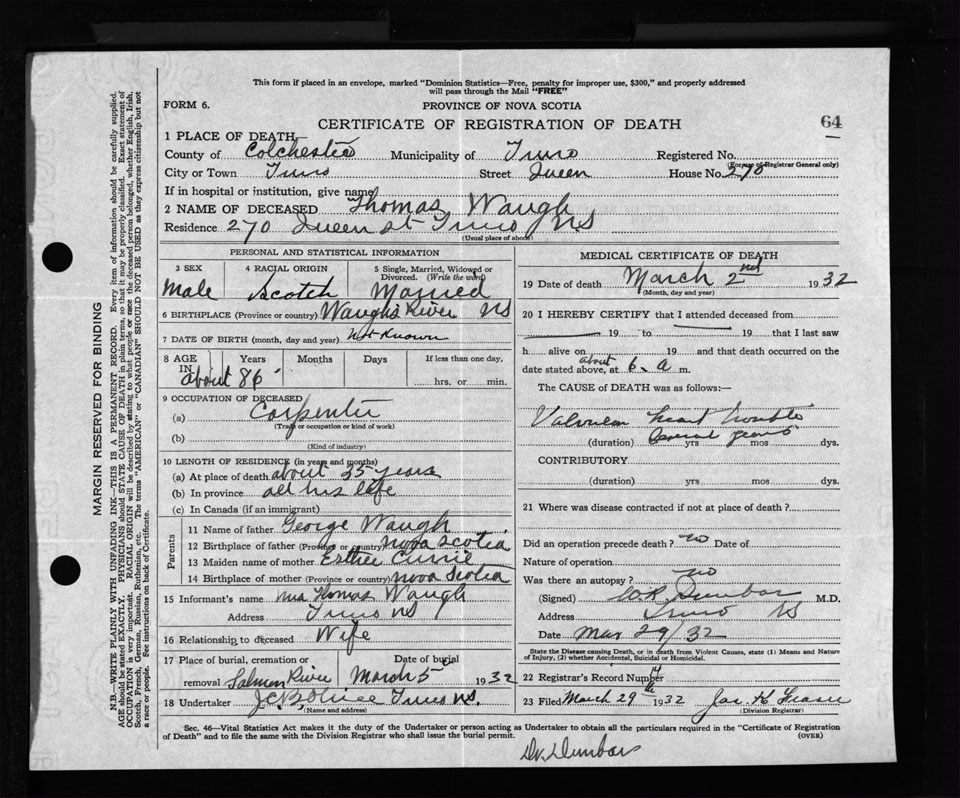 This form if placed in an envelope, marked "Dominion Statistics—Free, penalty for improper use, $300," and properly addressed
will pass through the Mail "FREE"
FORM 6.
PROVINCE OF NOVA SCOTIA
CERTIFICATE OF REGISTRATION OF DEATH
64
1 PLACE OF DEATH—
County of Colchester Municipality of Truro Registered No.
(For use of Registrar General only)
City or Town Truro Street Queen House No. 270
If in hospital or institution, give name
2 NAME OF DECEASED Thomas Waugh
Residence 270 Queen St Truro NS
(Usual place of abode)
PERSONAL AND STATISTICAL INFORMATION
3 SEX 4 RACIAL ORIGIN 5 Single, Married, Widowed or Divorced. (Write the word)
Male Scotch Married
6 BIRTHPLACE (Province or country) Waughs River NS
7 DATE OF BIRTH (month, day and year) Not Known
8 AGE Years Months Days If less than one day,
about 86 hrs. or min.
9 OCCUPATION OF DECEASED
(a) Carpenter
(Trade or occupation or kind of work)
(b)
(Kind of industry)
10 LENGTH OF RESIDENCE (in years and months)
(a) At place of death about 35 years
(b) In province all his life
(c) In Canada (if an immigrant)
Parents
11 Name of father George Waugh
12 Birthplace of father (Province or country) Nova Scotia
13 Maiden name of mother Esther Currie
14 Birthplace of mother (Province or country) Nova Scotia
15 Informant's name Mrs Thomas Waugh
Address Truro NS
16 Relationship to deceased Wife
17 Place of burial, cremation or Date of burial
removal Salmon River March 5 1932
18 Undertaker Truro NS.
(Name and address)
MEDICAL CERTIFICATE OF DEATH
19 Date of death March 2nd 1932
(Month, day and year)
20 I HEREBY CERTIFY that I attended deceased from
19 to 19 that I last saw
h alive on 19 and that death occurred on the
date stated above, at about 6 a m.
The CAUSE of DEATH was as follows:
Valvular heart trouble
(duration) Several years yrs mos dys.
CONTRIBUTORY
(duration) yrs mos dys.
21 Where was disease contracted if not at place of death?
Did an operation precede death? no Date of
Nature of operation
Was there an autopsy? no
(Signed) Dunbar M.D.
Address Truro NS
Date Mar 29/32
State the Disease causing Death, or in death from Violent Causes, state (1) Means and Nature
of Injury, (2) whether Accidental, Suicidal or Homicidal.
22 Registrar's Record Number
23 Filed March 29th 1932 Jas. H.
(Division Registrar)
Sec. 46—Vital Statistics Act makes it the duty of the Undertaker or person acting as Undertaker to obtain all the particulars required in the "Certificate of Registration
of Death" and to file the same with the Division Registrar who shall issue the burial permit. (OVER)
Dr. Dunbar
MARGIN RESERVED FOR BINDING
N.B.—WRITE PLAINLY WITH UNFADING INK—THIS IS A PERMANENT RECORD. Every item of information should be carefully supplied.
AGE should be stated EXACTLY. PHYSICIANS should STATE CAUSE OF DEATH in plain terms, so that it may be properly classified. Exact statement of
OCCUPATION is very important. RACIAL ORIGIN will be described by stating to what people or race the deceased person belonged, whether English, Irish,
Scotch, French, German, Russian, Ruthenian, etc. The terms "AMERICAN" or "CANADIAN" SHOULD NOT BE USED as they express citizenship but not
a race or people. See instructions on back of Certificate.